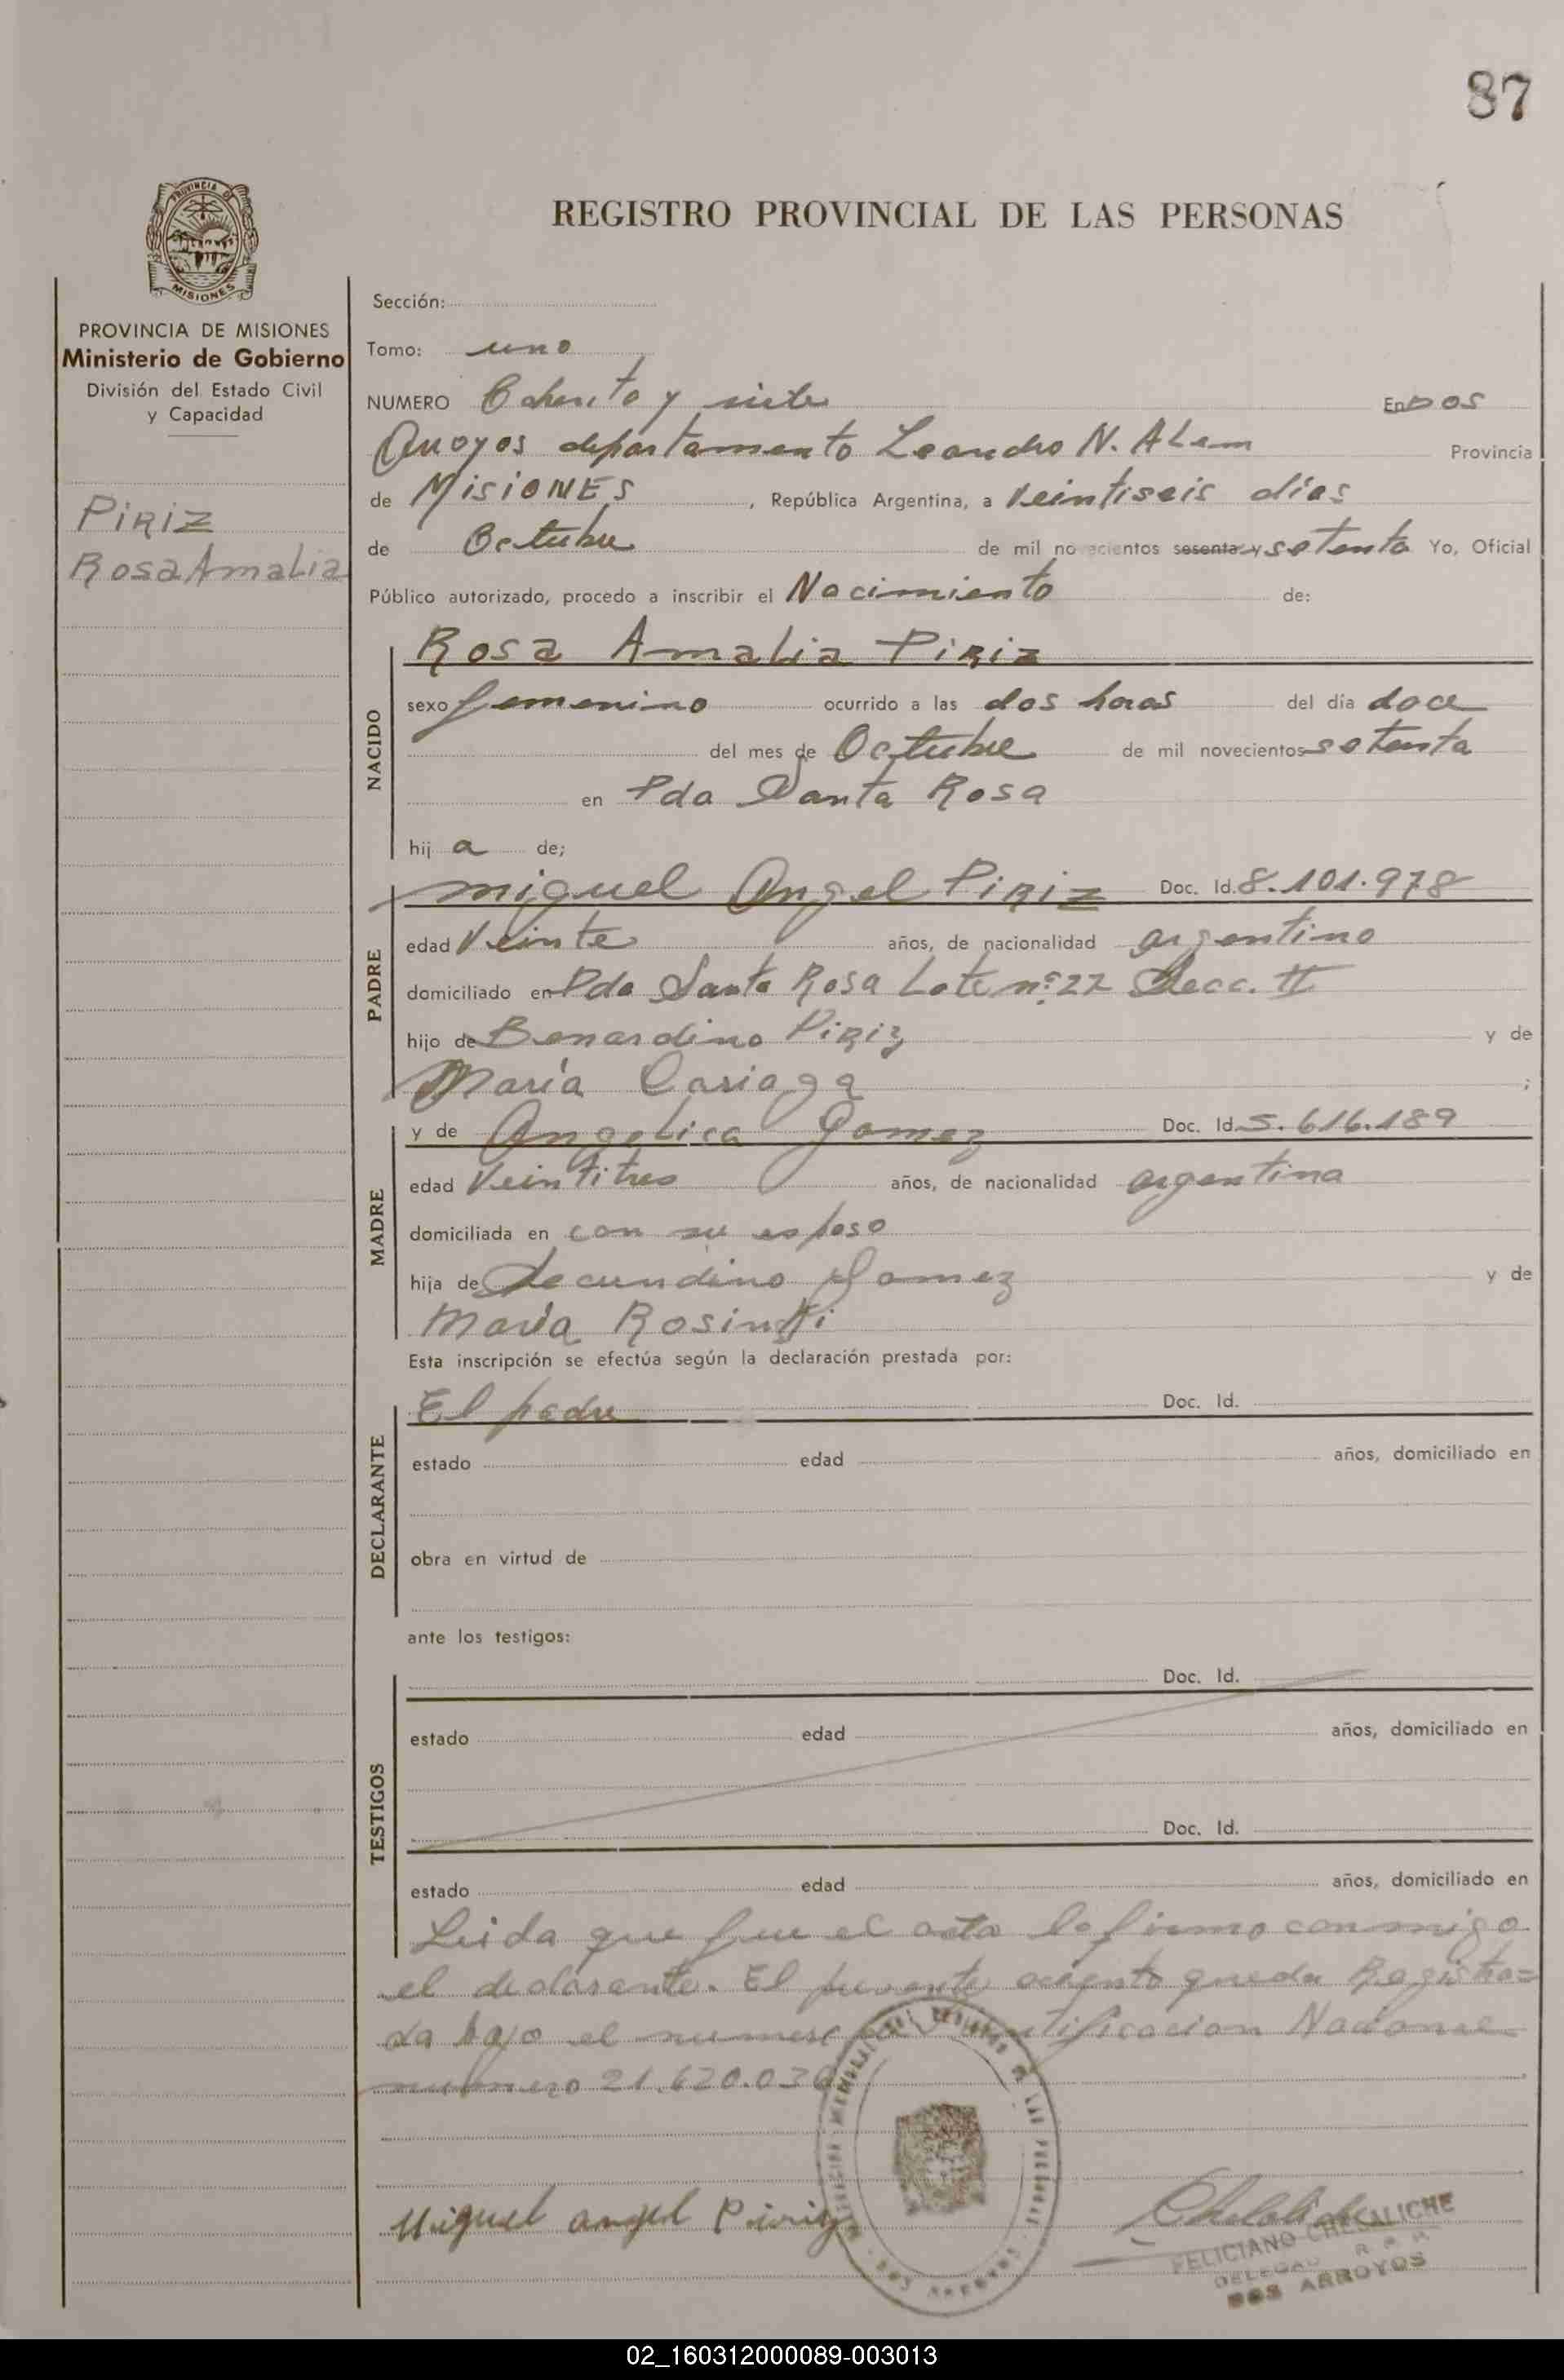 87
REGISTRO PROVINCIAL DE LAS PERSONAS
PROVINCIA DE
MISIONES
PROVINCIA DE MISIONES
Ministerio de Gobierno
División del Estado Civil
y Capacidad
PIRIZ
Rosa Amalia
Sección:
Tomo: uno
NUMERO Ochenta y siete En DOS
Arroyos departamento Leandro N. Alem Provincia
de MISIONES, República Argentina, a Veintiseis días
de Octubre de mil novecientos sesenta y setenta Yo, Oficial
Público autorizado, procedo a inscribir el Nacimiento de:
NACIDO
Rosa Amalia Piriz
sexo femenino ocurrido a las dos horas del día doce
del mes de Octubre de mil novecientos setenta
en Pda Santa Rosa
hij a de;
PADRE
Miguel Angel Piriz Doc. Id. 8.101.978
edad Veinte años, de nacionalidad argentino
domiciliado en Pda Santa Rosa Lote nº 27 Secc. II
hijo de Benardino Piriz y de
María Cariaga ;
MADRE
y de Angelica Gomez Doc. Id. 5.616.189
edad Veintitres años, de nacionalidad argentina
domiciliada en con su esposo
hija de Secundino Gomez y de
María Rosinski
Esta inscripción se efectúa según la declaración prestada por:
DECLARANTE
El padre Doc. Id.
estado edad años, domiciliado en
obra en virtud de
ante los testigos:
TESTIGOS
Doc. Id.
estado edad años, domiciliado en
Doc. Id.
estado edad años, domiciliado en
Leida que fue el acta la firmo conmigo
el declarante. El presente asiento queda Registra=
da bajo el numero de Identificacion Nacional
numero 21.620.036
Miguel angel Piriz
FELICIANO CHESALICHE
DELEGADO R P P
DOS ARROYOS
02_160312000089-003013